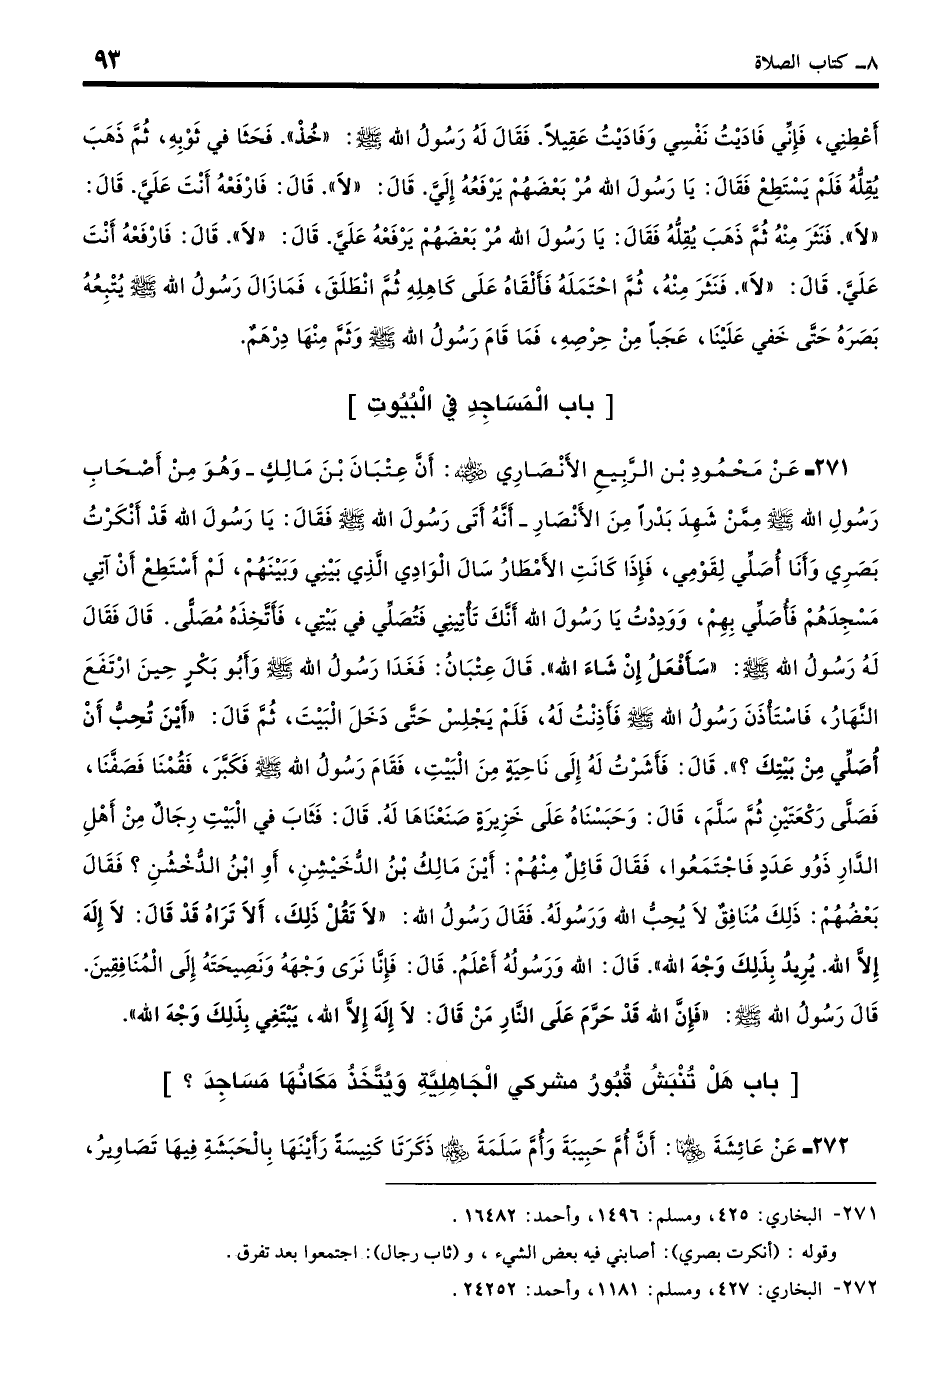 ٨ـ كتاب الصلاة ٩٣
أَعْطِنِي، فَإِنِّي فَادَيْتُ نَفْسِي وَفَادَيْتُ عَقِيلاً. فَقَالَ لَهُ رَسُولُ الله ﷺ: «خُذْ». فَحَثَا في ثَوْبِهِ، ثُمَّ ذَهَبَ
يُقِلُّهُ فَلَمْ يَسْتَطِعْ فَقَالَ: يَا رَسُولَ الله مُرْ بَعْضَهُمْ يَرْفَعُهُ إِلَيَّ. قَالَ: «لاَ». قَالَ: فَارْفَعْهُ أَنْتَ عَلَيَّ. قَالَ:
«لاَ». فَنَثَرَ مِنْهُ ثُمَّ ذَهَبَ يُقِلُّهُ فَقَالَ: يَا رَسُولَ الله مُرْ بَعْضَهُمْ يَرْفَعْهُ عَلَيَّ. قَالَ: «لاَ». قَالَ: فَارْفَعْهُ أَنْتَ
عَلَيَّ. قَالَ: «لاَ». فَنَثَرَ مِنْهُ، ثُمَّ احْتَمَلَهُ فَأَلْقَاهُ عَلَى كَاهِلِهِ ثُمَّ انْطَلَقَ، فَمَازَالَ رَسُولُ الله ﷺ يُتْبِعُهُ
بَصَرَهُ حَتَّى خَفي عَلَيْنَا، عَجَباً مِنْ حِرْصِهِ، فَمَا قَامَ رَسُولُ الله ﷺ وَثَمَّ مِنْهَا دِرْهَمٌ.
[ باب الْمَسَاجِدِ في الْبُيُوتِ ]
٢٧١ـ عَنْ مَحْمُودِ بْنِ الرَّبِيعِ الأَنْصَارِي رضي الله عنه: أَنَّ عِتْبَانَ بْنَ مَالِكٍ ـ وَهُوَ مِنْ أَصْحَابِ
رَسُولِ الله ﷺ مِمَّنْ شَهِدَ بَدْراً مِنَ الأَنْصَارِ ـ أَنَّهُ أَتَى رَسُولَ الله ﷺ فَقَالَ: يَا رَسُولَ الله قَدْ أَنْكَرْتُ
بَصَرِي وَأَنَا أُصَلِّي لِقَوْمِي، فَإِذَا كَانَتِ الأَمْطَارُ سَالَ الْوَادِي الَّذِي بَيْنِي وَبَيْنَهُمْ، لَمْ أَسْتَطِعْ أَنْ آتِي
مَسْجِدَهُمْ فَأُصَلِّي بِهِمْ، وَوَدِدْتُ يَا رَسُولَ الله أَنَّكَ تَأْتِينِي فَتُصَلِّي في بَيْتِي، فَأَتَّخِذَهُ مُصَلًّى. قَالَ فَقَالَ
لَهُ رَسُولُ الله ﷺ: «سَأَفْعَلُ إِنْ شَاءَ الله». قَالَ عِتْبَانُ: فَغَدَا رَسُولُ الله ﷺ وَأَبُو بَكْرٍ حِينَ ارْتَفَعَ
النَّهَارُ، فَاسْتَأْذَنَ رَسُولُ الله ﷺ فَأَذِنْتُ لَهُ، فَلَمْ يَجْلِسْ حَتَّى دَخَلَ الْبَيْتَ، ثُمَّ قَالَ: «أَيْنَ تُحِبُّ أَنْ
أُصَلِّي مِنْ بَيْتِكَ ؟». قَالَ: فَأَشَرْتُ لَهُ إِلَى نَاحِيَةٍ مِنَ الْبَيْتِ، فَقَامَ رَسُولُ الله ﷺ فَكَبَّرَ، فَقُمْنَا فَصَفَّنَا،
فَصَلَّى رَكْعَتَيْنِ ثُمَّ سَلَّمَ، قَالَ: وَحَبَسْنَاهُ عَلَى خَزِيرَةٍ صَنَعْنَاهَا لَهُ. قَالَ: فَثَابَ في الْبَيْتِ رِجَالٌ مِنْ أَهْلِ
الدَّارِ ذَوُو عَدَدٍ فَاجْتَمَعُوا، فَقَالَ قَائِلٌ مِنْهُمْ: أَيْنَ مَالِكُ بْنُ الدُّخَيْشِنِ، أَوِ ابْنُ الدُّخْشُنِ ؟ فَقَالَ
بَعْضُهُمْ: ذَلِكَ مُنَافِقٌ لاَ يُحِبُّ الله وَرَسُولَهُ. فَقَالَ رَسُولُ الله: «لاَ تَقُلْ ذَلِكَ، أَلاَ تَرَاهُ قَدْ قَالَ: لاَ إِلَهَ
إِلاَّ الله. يُرِيدُ بِذَلِكَ وَجْهَ الله». قَالَ: الله وَرَسُولُهُ أَعْلَمُ. قَالَ: فَإِنَّا نَرَى وَجْهَهُ وَنَصِيحَتَهُ إِلَى الْمُنَافِقِينَ.
قَالَ رَسُولُ الله ﷺ: «فَإِنَّ الله قَدْ حَرَّمَ عَلَى النَّارِ مَنْ قَالَ: لاَ إِلَهَ إِلاَّ الله، يَبْتَغِي بِذَلِكَ وَجْهَ الله».
[ باب هَلْ تُنْبَشُ قُبُورُ مشركي الْجَاهِلِيَّةِ وَيُتَّخَذُ مَكَانُهَا مَسَاجِدَ ؟ ]
٢٧٢ـ عَنْ عَائِشَةَ رضي الله عنها: أَنَّ أُمَّ حَبِيبَةَ وَأُمَّ سَلَمَةَ رضي الله عنهما ذَكَرَتَا كَنِيسَةً رَأَيْنَهَا بِالْحَبَشَةِ فِيهَا تَصَاوِيرُ،
٢٧١- البخاري: ٤٢٥، ومسلم: ١٤٩٦، وأحمد: ١٦٤٨٢ .
وقوله : (أنكرت بصري): أصابني فيه بعض الشيء ، و (ثاب رجال): اجتمعوا بعد تفرق .
٢٧٢- البخاري: ٤٢٧، ومسلم: ١١٨١، وأحمد: ٢٤٢٥٢ .